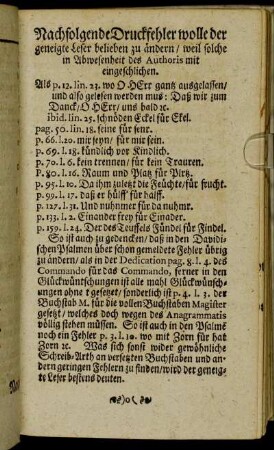 Nachfolgende Druckfehler wolle der
geneigte Leser belieben zu ändern / weil solche
in Abwesenheit des Authoris mit
eingeschlichen.
Als p. 12. lin. 23. wo O HErr gantz ausgelassen /
und also gelesen werden mus: Daß wir zum
Danck / O HErr / uns bald ꝛc.
ibid. lin. 25. schnöden Eckel für Ekel.
pag. 50. lin. 18. seine für senr.
p. 66. l. 20. mir seyn / für mir sein.
p. 69. l. 18. kündlich vor Kindlich.
p. 70. l. 6. kein trennen / für kein Trauren.
p. 80. l. 16. Raum und Platz für Pirtz.
p. 95. l. 10. Da ihm zuletzt die Feüchte / für frucht.
p. 99. l. 17. daß er hülff' für halff.
p. 127. l. 31. Und nuhmer für da nuhmr.
p. 133. l. 2. Einander frey für Einader.
p. 159. l. 24. Der des Teuffels Fündel für Findel.
So ist auch zu gedencken / daß in den Davidi-
schen Psalmen über schon gemeldete Fehler übrig
zu ändern / als in der Dedication pag. 8. l. 4. des
Commando für das Commando, ferner in den
Glückwünschungen ist alle mahl Glückwünsch-
ungen ohne t gesetzet / sonderlich ist p. 4. l. 3. der
Buchstab M. für die vollen Buchstaben Magister
gesetzt / welches doch wegen des Anagrammatis
völlig stehen müssen. So ist auch in den Psalmē
noch ein Fehler p. 3. l. 10. wo mit Zorn für hat
Zorn ꝛc. Was sich sonst wider gewöhnliche
Schreib-Arth an versetzten Buchstaben und an-
dern geringen Fehlern zu finden / wird der geneig-
te Leser bestens deuten.